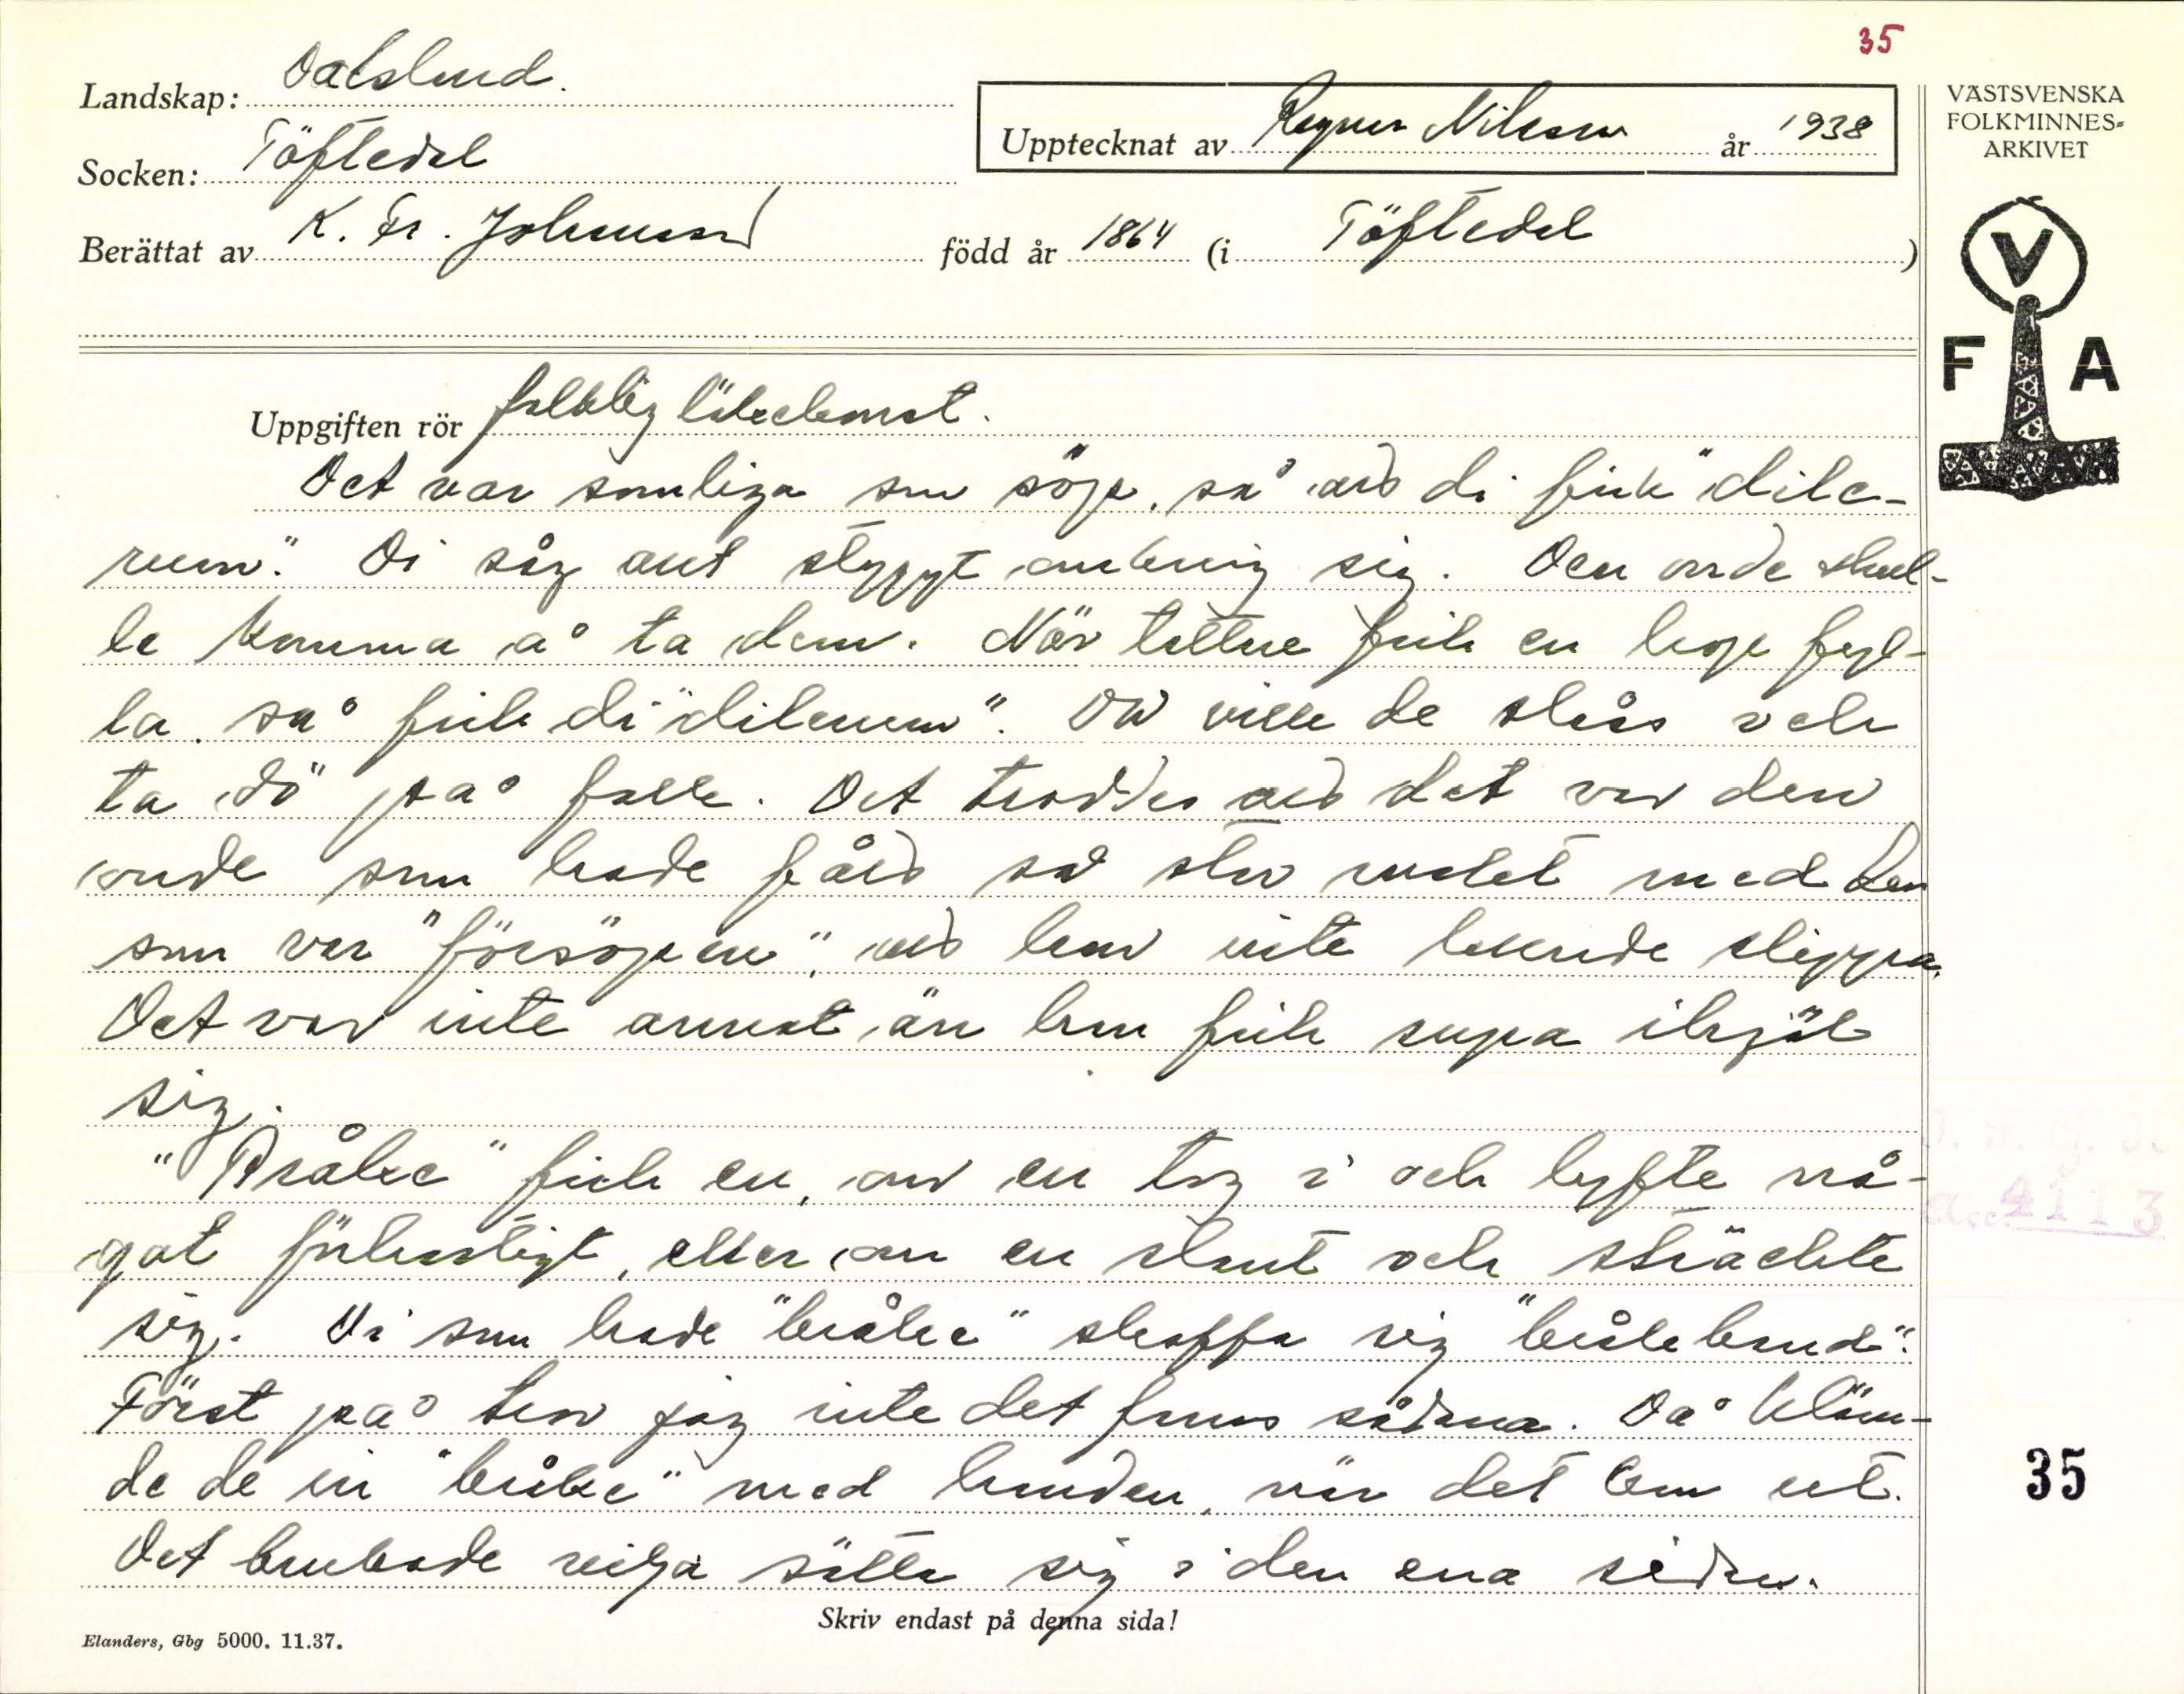 35
Landskap: Dalsland.
Socken: Töftedal
Berättat av K. Fr. Johansson född år 1864 (i Töftedal)
Upptecknat av Ragnar Nilsson år 1938
VÄSTSVENSKA
FOLKMINNES-
ARKIVET
V
F A
Uppgiften rör folklig läkekonst.
Det var somliga som söp, så att di fick "dile-
rium". Di såg allt styggt omkring sig. Den onde skul-
le komma å ta dem. När tattare fick en hop fyl-
la, så fick di "dilerium". Då ville de slåss och
ta dö på folk. Det troddes att det var den
onde som hade fått så stor makt med den
som var "försöpen", att han inte kunde slippa.
Det var inte annat än han fick supa ihjäl
sig.
"Bråkæ" fick en, om en tog i och lyfte nå-
got förhastigt, eller om en slant och sträckte
sig. Di som hade "bråkæ" skaffa sig "bråkband".
Först på tror jag inte det fanns sådana. Då kläm-
de de in "bråkæ" med handen, när det kom ut.
Det brukade vilja sätta sig i den ena sidan.
Skriv endast på denna sida!
Elanders, Gbg 5000. 11.37.
Acc. 4113
35